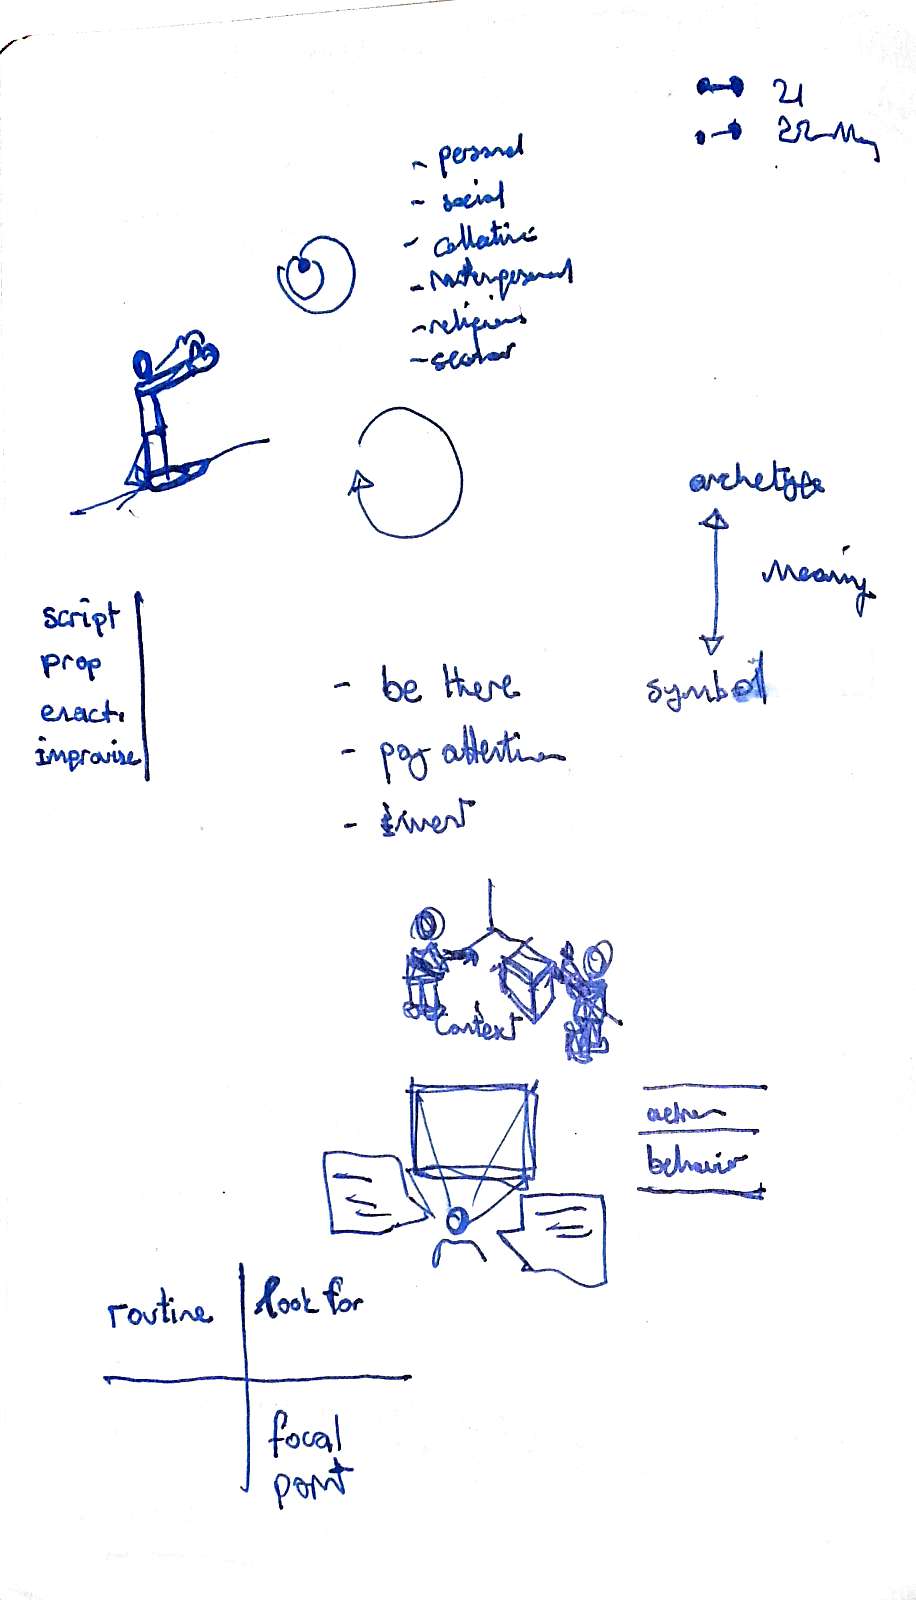 21
22 May
- personal
- social
- collective
- interpersonal
- religious
- secular
archetype
Meaning
symbol
script
prop
enact.
improvise
- be there
- pay attention
- invest
Context
action
behavior
routine
look for
focal
point